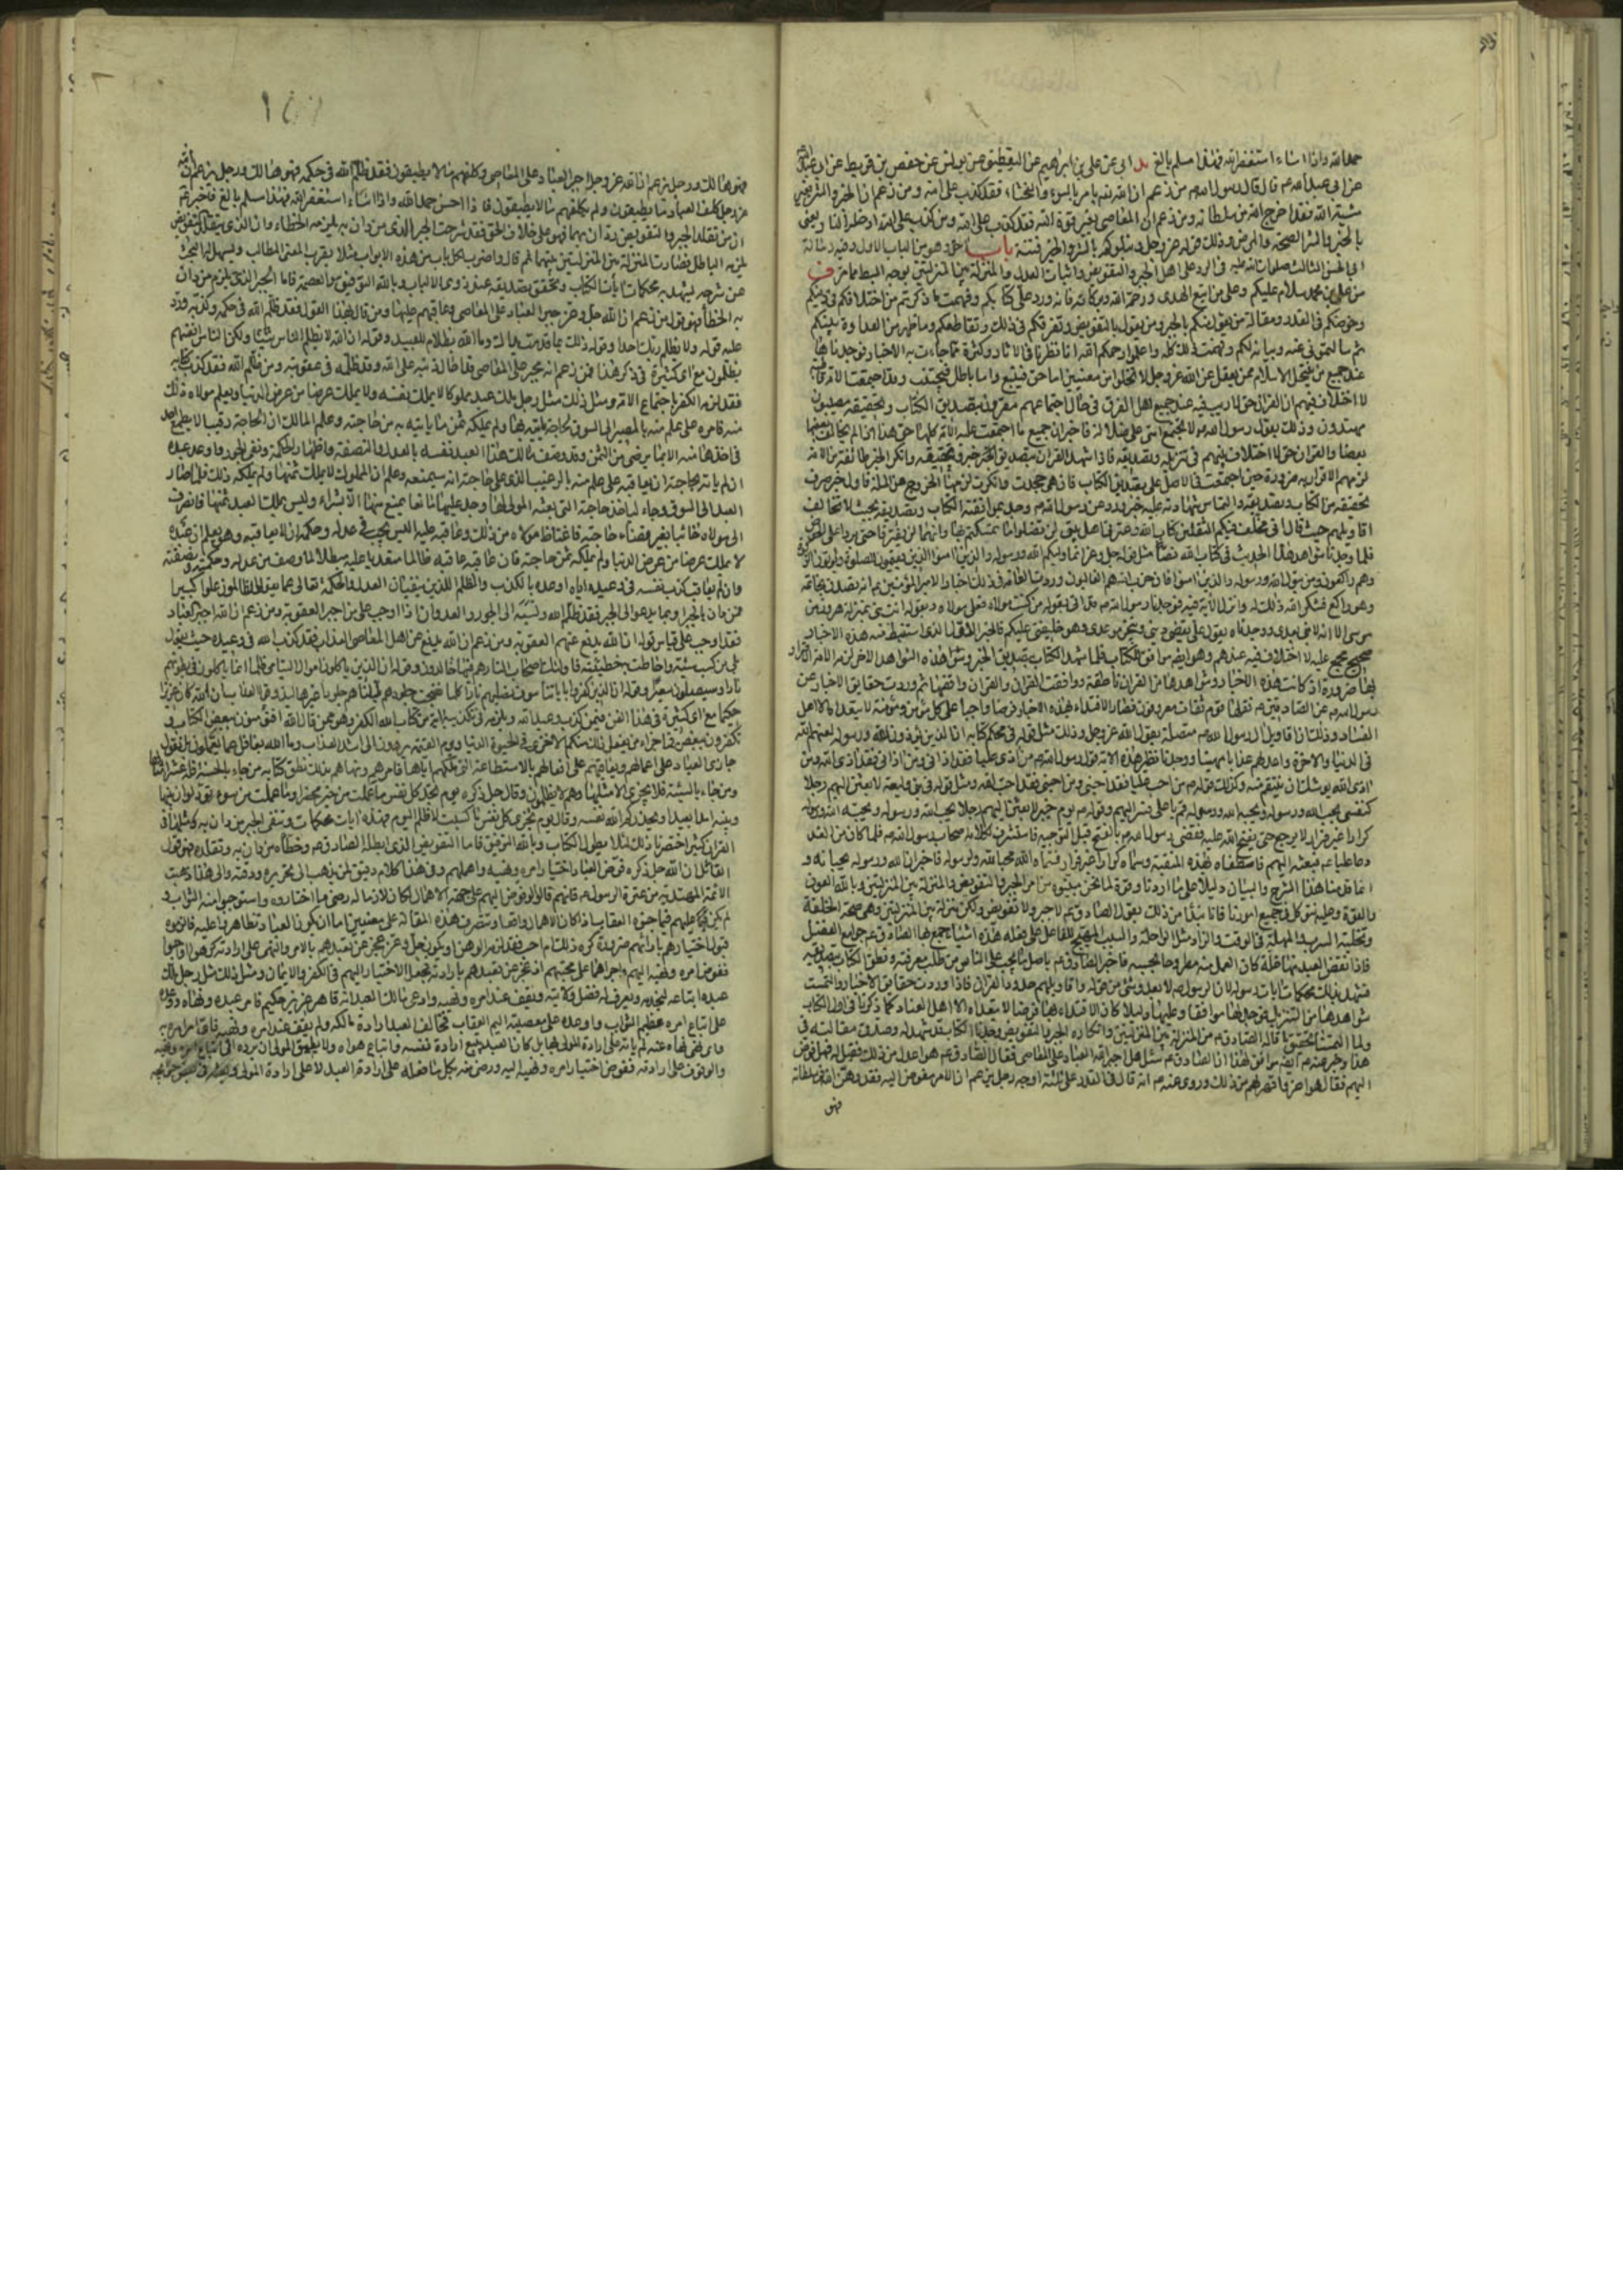 حمد الله واذا اساء استغفر الله فهذا مسلم بالغ يد ابي عن علي بن ابراهيم عن اليقطيني عن يونس عن حفص بن قرط عن
عن ابي عبد الله ع قال قال رسول الله ص من زعم ان الله يامر بالسوء والفحشاء فقد كذب على الله ومن زعم ان الخير والشر بغير
مشية الله فقد اخرج الله من سلطانه ومن زعم ان المعاصي بغير قوة الله فقد كذب على الله ومن كذب على الله ادخله النار يعني
بالخير والشر الصحة والمرض وذلك قوله عز وجل ونبلوكم بالشر والخير فتنة باب اخر وهو من الباب الاول وفيه رسالة
ابي الحسن الثالث صلوات الله عليه في الرد على اهل الجبر والتفويض واثبات العدل والمنزلة بين المنزلتين بوجه ابسط مما مر ف
من علي بن محمد سلام عليكم وعلى من اتبع الهدى ورحمة الله وبركاته فانه ورد علي كتابكم وفهمت ما ذكرتم من اختلافكم في دينكم
وخوضكم في القدر ومقالة من يقول منكم بالجبر ومن يقول بالتفويض وتفرقكم في ذلك وتقاطعكم وما ظهر من العداوة بينكم
ثم سالتموني عنه وبيانه لكم وفهمت ذلك كله واعلموا رحمكم الله انا نظرنا في الاثار وكثرة ما جاءت به الاخبار فوجدناها
عند جميع من ينتحل الاسلام ممن يعقل عن الله عز وجل لا تخلوا من معنيين اما حق فيتبع واما باطل فيجتنب وقد اجتمعت الامة
لا اختلاف بينهم ان القران حق لا ريب فيه عند جميع اهل الفرق وفي حال اجتماعهم مقرون بتصديق الكتاب وتحقيقه مصيبون
مهتدون وذلك بقول رسول الله ص لا تجتمع امتي على ضلالة فاخبر ان جميع ما اجتمعت عليه الامة كلها حق هذا اذا لم يخالف بعضها
بعضا والقران حق لا اختلاف بينهم في تنزيله وتصديقه فاذا شهد القران بتصديق خبر وتحقيقه وانكر الخبر طائفة من الامة
لزمهم الاقرار به ضرورة حين اجتمعت في الاصل على تصديق الكتاب فان هي جحدت وانكرت لزمها الخروج من الملة فاول خبر يعرف
تحقيقه من الكتاب وتصديقه والتماس شهادته عليه خبر ورد عن رسول الله ص ووجد بموافقة الكتاب وتصديقه بحيث لا تخالفه
اقاويلهم حيث قال اني مخلف فيكم الثقلين كتاب الله وعترتي اهل بيتي لن تضلوا ما تمسكتم بهما وانهما لن يفترقا حتى يردا علي الحوض
فلما وجدنا شواهد هذا الحديث في كتاب الله نصا مثل قوله جل وعز انما وليكم الله ورسوله والذين امنوا الذين يقيمون الصلوة ويؤتون الزكوة
وهم راكعون ومن يتول الله ورسوله والذين امنوا فان حزب الله هم الغالبون وروت العامة في ذلك اخبارا لامير المؤمنين ع انه تصدق بخاتمه
وهو راكع فشكر الله ذلك له وانزل الاية فيه فوجدنا رسول الله ص قد اتى بقوله من كنت مولاه فعلي مولاه وبقوله انت مني بمنزلة هرون من
موسى الا انه لا نبي بعدي ووجدناه يقول علي يقضي ديني وينجز موعدي وهو خليفتي عليكم من بعدي فالخبر الاول الذي استنبطت منه هذه الاخبار
صحيح مجمع عليه لا اختلاف فيه عندهم وهو ايضا موافق للكتاب فلما شهد الكتاب بتصديق الخبر وهذه الشواهد الاخر لزم الامة الاقرار
بها ضرورة اذ كانت هذه الاخبار شواهدها من القران ناطقة ووافقت القران والقران وافقها ثم وردت حقايق الاخبار عن
رسول الله ص عن الصادقين ع نقلها قوم ثقات معروفون فصار الاقتداء بهذه الاخبار فرضا واجبا على كل مؤمن ومؤمنة لا يتعداه الا اهل
العناد وذلك ان اقاويل ال رسول الله ص متصلة بقول الله عز وجل وذلك مثل قوله في محكم كتابه ان الذين يؤذون الله ورسوله لعنهم الله
في الدنيا والاخرة واعد لهم عذابا مهينا ووجدنا نظير هذه الاية قول رسول الله ص من اذى عليا فقد اذاني ومن اذاني فقد اذى الله ومن
اذى الله يوشك ان ينتقم منه وكذلك قوله ص من احب عليا فقد احبني ومن احبني فقد احب الله ومثل قوله في بني وليعة لابعثن اليهم رجلا
كنفسي يحب الله ورسوله ويحبه الله ورسوله قم يا علي فسر اليهم وقوله ص يوم خيبر لابعثن اليهم رجلا يحب الله ورسوله ويحبه الله ورسوله
كرارا غير فرار لا يرجع حتى يفتح الله عليه فقضى رسول الله ص بالفتح قبل التوجيه فاستشرف لكلامه اصحاب رسول الله ص فلما كان من الغد
دعا عليا ع فبعثه اليهم فاصطفاه بهذه المنقبة وسماه كرارا غير فرار فسماه الله محبا لله ولرسوله فاخبر ان الله ورسوله يحبانه و
انما قدمنا هذا الشرح والبيان دليلا على ما اردنا وقوة لما نحن مبينوه من امر الجبر والتفويض والمنزلة بين المنزلتين وبالله العون
والقوة وعليه نتوكل في جميع امورنا فانا نبدأ من ذلك بقول الصادق ع لا جبر ولا تفويض ولكن منزلة بين المنزلتين وهي صحة الخلقة
وتخلية السرب والمهلة في الوقت والزاد مثل الراحلة والسبب المهيج للفاعل على فعله فهذه خمسة اشياء جمع بها الصادق ع جوامع الفضل
فاذا نقص العبد منها خلة كان العمل عنه مطروحا بحسبه فاخبر الصادق ع باصل ما يجب على الناس من طلب معرفته ونطق الكتاب بتصديقه
فشهد بذلك محكمات ايات رسوله لان الرسول ص لا يعدو شيء من قوله واقاويلهم حدود القران فاذا وردت حقايق الاخبار والتمست
شواهدها من التنزيل فوجد لها موافقا وعليها دليلا كان الاقتداء بها فرضا لا يتعداه الا اهل العناد كما ذكرنا في اول الكتاب
ولما التمسنا تحقيق ما قاله الصادق ع من المنزلة بين المنزلتين وانكاره الجبر والتفويض وجدنا الكتاب قد شهد له وصدق مقالته في
هذا وخبر عنه ايضا موافق لهذا ان الصادق ع سئل هل اجبر الله العباد على المعاصي فقال الصادق ع هو اعدل من ذلك فقيل له فهل فوض
اليهم فقال هو اعز واقهر لهم من ذلك وروي عنه ع انه قال الناس في القدر على ثلثة اوجه رجل يزعم ان الامر مفوض اليه فقد وهن الله في سلطانه
فهو
فهو هالك ورجل يزعم ان الله عز وجل اجبر العباد على المعاصي وكلفهم ما لا يطيقون فقد ظلم الله في حكمه فهو هالك ورجل يزعم ان الله
عز وجل كلف العباد ما يطيقون ولم يكلفهم ما لا يطيقون فاذا احسن حمد الله واذا اساء استغفر الله فهذا مسلم بالغ فاخبر ع
ان من تقلد الجبر والتفويض ودان بهما فهو على خلاف الحق فقد شرحت الجبر الذي من دان به يلزمه الخطاء وان الذي يتقلد التفويض
يلزمه الباطل فصارت المنزلة بين المنزلتين بينهما ثم قال واضرب لكل باب من هذه الابواب مثلا يقرب المعنى للطالب ويسهل له البحث
عن شرحه يشهد به محكمات ايات الكتاب وتحقق تصديقه عند ذوي الالباب وبالله التوفيق والعصمة فاما الجبر الذي يلزم من دان
به الخطأ فهو قول من زعم ان الله جل وعز جبر العباد على المعاصي وعاقبهم عليها ومن قال بهذا القول فقد ظلم الله في حكمه وكذبه ورد
عليه قوله ولا يظلم ربك احدا وقوله ذلك بما قدمت يداك وان الله ليس بظلام للعبيد وقوله ان الله لا يظلم الناس شيئا ولكن الناس انفسهم
يظلمون مع اي كثيرة في ذكر هذا فمن زعم انه مجبر على المعاصي فقد احال بذنبه على الله وقد ظلمه في عقوبته ومن ظلم الله فقد كذب كتابه
فقد لزمه الكفر باجتماع الامة ومثل ذلك مثل رجل ملك عبدا مملوكا لا يملك نفسه ولا يملك عرضا من عرض الدنيا ويعلم مولاه ذلك
منه فامره على علم منه بالمصير الى السوق لحاجة ياتيه بها ولم يملكه ثمن ما ياتيه به من حاجته وعلم المالك ان على الحاجة رقيبا لا يطمع احد
في اخذها منه الا بما يرضى به من الثمن وقد وصف مالك هذا العبد نفسه بالعدل والنصفة واظهار الحكمة ونفي الجور واوعد عبده
ان لم ياته بحاجته ان يعاقبه على علم منه بالرقيب الذي على حاجته انه سيمنعه وعلم ان المملوك لا يملك ثمنها ولم يملكه ذلك فلما صار
العبد الى السوق وجاء لياخذ حاجته التي بعثه المولى لها وجد عليها مانعا يمنع منها الا بشراء وليس يملك العبد ثمنها فانصرف
الى مولاه خائبا بغير قضاء حاجته فاغتاظ مولاه من ذلك وعاقبه عليه اليس يجب في عدله وحكمه ان لا يعاقبه وهو يعلم ان عبده
لا يملك عرضا من عروض الدنيا ولم يملكه ثمن حاجته فان عاقبه عاقبه ظالما متعديا عليه مبطلا لما وصف من عدله وحكمته ونصفته
وان لم يعاقبه كذب نفسه في وعيده اياه حين اوعده بالكذب والظلم اللذين ينفيان العدل والحكمة تعالى عما يقول الظالمون علوا كبيرا
فمن دان بالجبر او بما يدعو الى الجبر فقد ظلم الله ونسبه الى الجور والعدوان اذ اوجب على من اجبر العقوبة ومن زعم ان الله اجبر العباد
فقد اوجب على قياس قوله ان الله يدفع عنهم العقوبة ومن زعم ان الله يدفع عن اهل المعاصي العذاب فقد كذب الله في وعيده حيث يقول
بلى من كسب سيئة واحاطت به خطيئته فاولئك اصحاب النار هم فيها خالدون وقوله ان الذين ياكلون اموال اليتامى ظلما انما ياكلون في بطونهم
نارا وسيصلون سعيرا وقوله ان الذين كفروا باياتنا سوف نصليهم نارا كلما نضجت جلودهم بدلناهم جلودا غيرها ليذوقوا العذاب ان الله كان عزيزا
حكيما مع اي كثيرة في هذا الفن فمن كذب وعيد الله ويلزمه في تكذيبه اية من كتاب الله الكفر وهو ممن قال الله افتؤمنون ببعض الكتاب و
تكفرون ببعض فما جزاء من يفعل ذلك منكم الا خزي في الحيوة الدنيا ويوم القيمة يردون الى اشد العذاب وما الله بغافل عما يعملون بل نقول
جازى العباد على اعمالهم ويعاقبهم على افعالهم بالاستطاعة التي ملكهم اياها فامرهم ونهاهم بذلك ونطق كتابه من جاء بالحسنة فله عشر امثالها
ومن جاء بالسيئة فلا يجزى الا مثلها وهم لا يظلمون وقال جل ذكره يوم تجد كل نفس ما عملت من خير محضرا وما عملت من سوء تود لو ان بينها
وبينه امدا بعيدا ويحذركم الله نفسه وقال اليوم تجزى كل نفس بما كسبت لا ظلم اليوم فهذه ايات محكمات تنفي الجبر ومن دان به ومثلها في
القران كثير اختصرنا ذلك لئلا يطول الكتاب وبالله التوفيق فاما التفويض الذي ابطله الصادق ع وخطأ من دان به وتقلده فهو قول
القائل ان الله جل ذكره فوض الى العباد اختيار امره ونهيه واهملهم وفي هذا كلام دقيق لمن يذهب الى تحريره ودقته والى هذا ذهبت
الائمة المهتدية من عترة الرسول ع فانهم قالوا لو فوض اليهم على جهة الاهمال لكان لازما له رضى ما اختاروه واستوجبوا به الثواب و
لم يكن عليهم فيما جنوه العقاب اذ كان الاهمال واقعا وتنصرف هذه المقالة على معنيين اما ان يكون العباد تظاهروا عليه فالزموه
قبول اختيارهم بارائهم ضرورة كره ذلك ام احب فقد لزمه الوهن او يكون جل وعز عجز عن تعبدهم بالامر والنهي على ارادته كرهوا او احبوا
ففوض امره ونهيه اليهم واجراهما على محبتهم اذ عجز عن تعبدهم بارادته فجعل الاختيار اليهم في الكفر والايمان ومثل ذلك مثل رجل ملك
عبدا ابتاعه ليخدمه ويعرف له فضل ولايته ويقف عند امره ونهيه وادعى مالك العبد انه قاهر عزيز حكيم فامر عبده ونهاه ووعده
على اتباع امره عظيم الثواب واوعده على معصيته اليم العقاب فخالف العبد ارادة مالكه ولم يقف عند امره ونهيه فاي امر امره به
واي نهي نهاه عنه لم ياته على ارادة المولى بل كان العبد يتبع ارادة نفسه واتباع هواه ولا يطيق المولى ان يرده الى اتباع امره ونهيه
والوقوف على ارادته ففوض اختيار امره ونهيه اليه ورضي منه بكل ما فعله على ارادة العبد لا على ارادة المولى